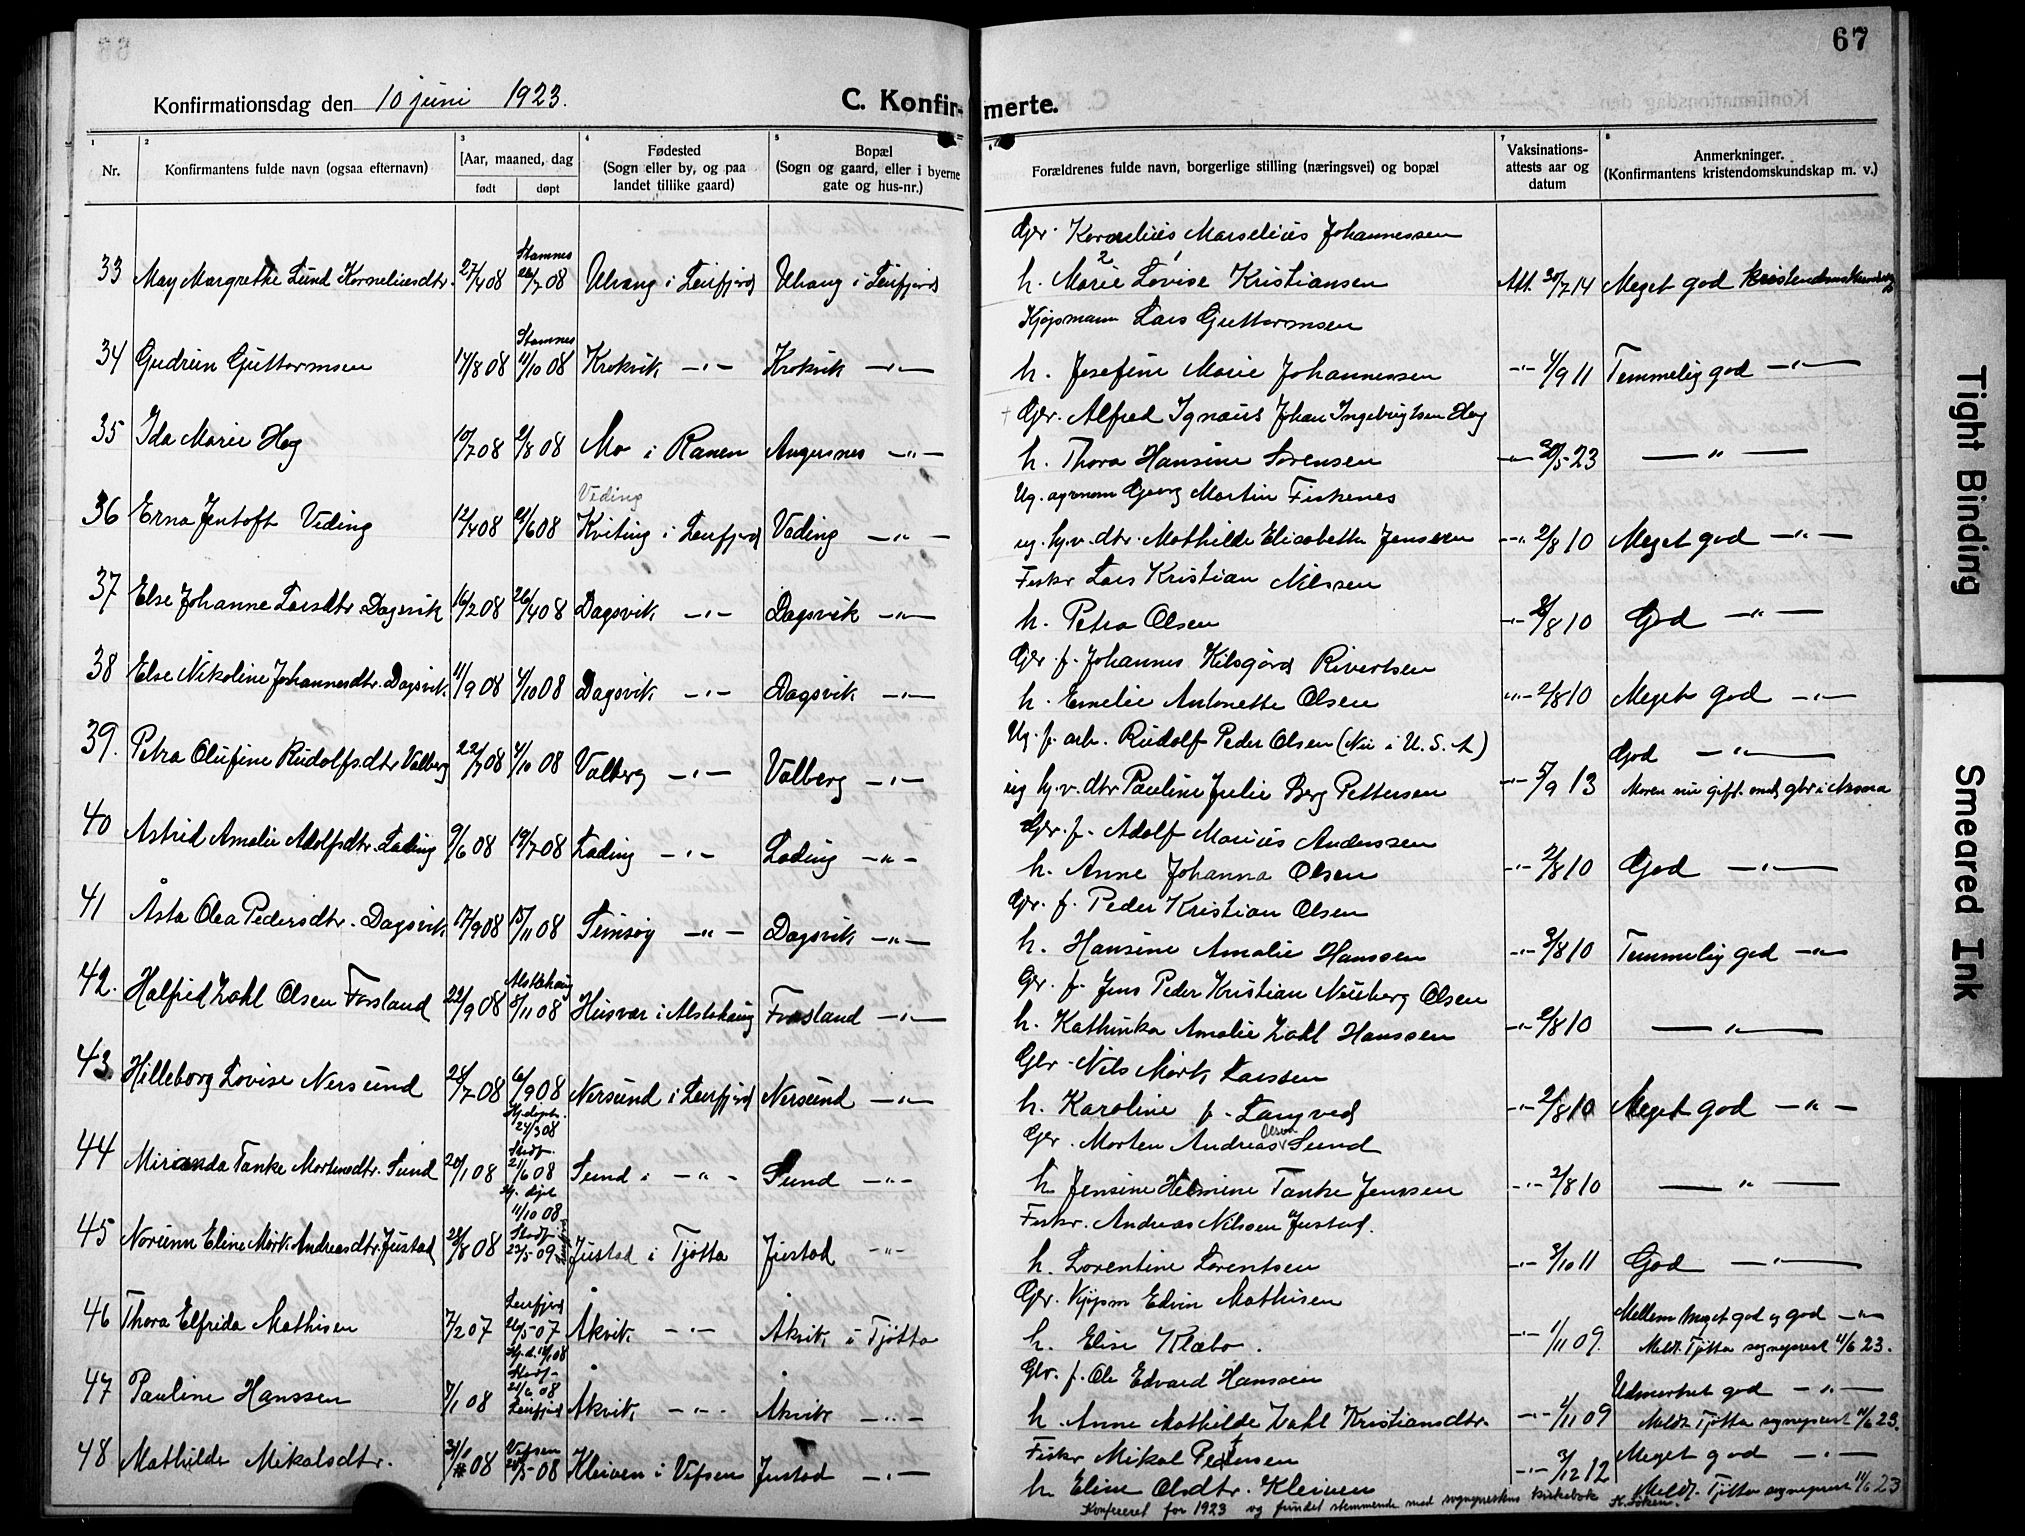 67
Konfirmationsdag den 10 juni 1923.
C. Konfirmerte.
Nr.
Konfirmantens fulde navn (ogsaa efternavn)
Aar, maaned, dag
født døpt
Fødested
(Sogn eller by, og paa
landet tillike gaard)
Bopæl
(Sogn og gaard, eller i byerne
gate og hus-nr.)
Forældrenes fulde navn, borgerlige stilling (næringsvei) og bopæl
Vaksinations-
attests aar og
datum
Anmerkninger.
(Konfirmantens kristendomskundskap m. v.)
Gbr. Kornelius Marselius Johannessen
33 May Margrethe Lund Korneliusdtr. 27/4 08 Stamnes 26/7 08 Ulvang i Leirfjord Ulvang i Leirfjord h. Marie Lovise Kristiansen Att. 30/7 14 Meget god kristendomskundskap
Kjøpmann Lars Guttormsen
34 Gudrun Guttormsen 17/8 08 Stamnes 11/10 08 Krokvik —"— Krokvik —"— h. Josefine Marie Johannessen —"— 4/9 11 Temmelig god —"—
Gbr. Alfred Ignaus Johan Ingebrigtsen Hog
35 Ida Marie Hog 10/7 08 9/8 08 Mo i Ranen Angersnes —"— h. Thora Hansine Sørensen —"— 30/5 23 —"—
Ug. agronom Georg Martin Fiskenes
36 Erna Jentoft Veding 12/4 08 21/6 08 Veding Kviting i Leirfjord Veding —"— ug. hj.v. dtr. Mathilde Elisabeth Jensen —"— 2/8 10 Meget god —"—
Fisker Lars Kristian Nilssen
37 Else Johanne Larsdtr. Dagsvik 16/2 08 26/4 08 Dagsvik —"— Dagsvik —"— h. Petra Olsen —"— 2/8 10 God —"—
Gbr. f. Johannes Kilsgård Rivertsen
38 Else Nikoline Johannesdtr. Dagsvik 11/9 08 4/10 08 Dagsvik —"— Dagsvik —"— h. Emelie Antonette Olsen —"— 2/8 10 Meget god —"—
Ug. f. arb. Rudolf Peder Olsen (Nu i U.S.A)
39. Petra Olufine Rudolfsdtr Valberg 22/7 08 4/10 08 Valberg —"— Valberg —"— ug hj.v. dtr Pauline Julie Berg Pettersen —"— 5/9 13 God —"—
Moren nu gift med gbr i Nesna
Gbr. f. Adolf Marius Anderssen
40 Astrid Amalie Adolfsdtr. Lading 9/6 08 19/7 08 Lading —"— Lading —"— h. Anne Johanna Olsen —"— 2/8 10 God —"—
Gbr. f. Peder Kristian Olsen
41 Åsta Olea Pedersdtr. Dagsvik 17/9 08 15/11 08 Simsøy —"— Dagsvik —"— h. Hansine Amalie Hanssen —"— 3/8 10 Temmelig god —"—
Gbr. f. Jens Peder Kristian Neuberg Olsen
42. Halfrid Zahl Olsen Forsland 22/9 08 Alstahaug 8/11 08 Husvær i Alstahaug Forsland —"— h. Kathinka Amalie Zahl Hanssen —"— 2/8 10 —"—
Gbr. Nils Mørk Larssen
43. Hilleborg Lovise Nersund 28/7 08 6/9 08 Nersund i Leirfjord Nersund —"— h. Karoline f. Langved —"— 2/8 10 Meget god —"—
Hj. døpt. 24/3 08
Gbr. Morten Andreas Olsen Sund
44 Miranda Tanke Mortensdtr. Sund 20/1 08 Stadf. 21/6 08 Sund i —"— Sund —"— h. Jensine Helmine Tanke Jenssen —"— 2/8 10 —"—
Hj. døpt 11/10 08
Fisker. Andreas Nilssen Justad.
45 Norunn Eline Mørk Andreasdtr. Justad 28/8 08 Stadf. 23/5 09 Justad i Tjøtta Justad —"— h. Lorentine Lorentsen —"— 3/10 11 God —"—
Gbr. Kjøpm Edvin Mathisen
46 Thora Elfrida Mathisen 7/2 07 Leirfjord 26/5 07 Åkvik —"— Åkvik i Tjøtta h. Elise Klæbo. —"— 1/11 09. Mellem meget god og god —"—
Meldt Tjøtta sogneprest 11/6 23.
Gbr. f. Ole Edvard Hanssen
47 Pauline Hanssen 7/1 08 Stadf. 21/6 08 Leirfjord Åkvik —"— Åkvik —"— h. Anne Mathilde Zahl Kristiansdtr. —"— 1/11 09 Udmerket god —"—
Meldt Tjøtta sogneprest 11/6 23.
Fisker Mikal Pedersen
48 Mathilde Mikalsdtr. 31/1 08 Vefsen 28/5 08 Kleiven i Vefsen Justad —"— h. Eline Olsdtr. Kleiven —"— 3/12 12 Meget god —"—
Meldt Tjøtta sogneprest 11/6 23
Konferert for 1923 og fundet stemmende med sogneprestens kirkebok
Tight Binding
Smeared Ink